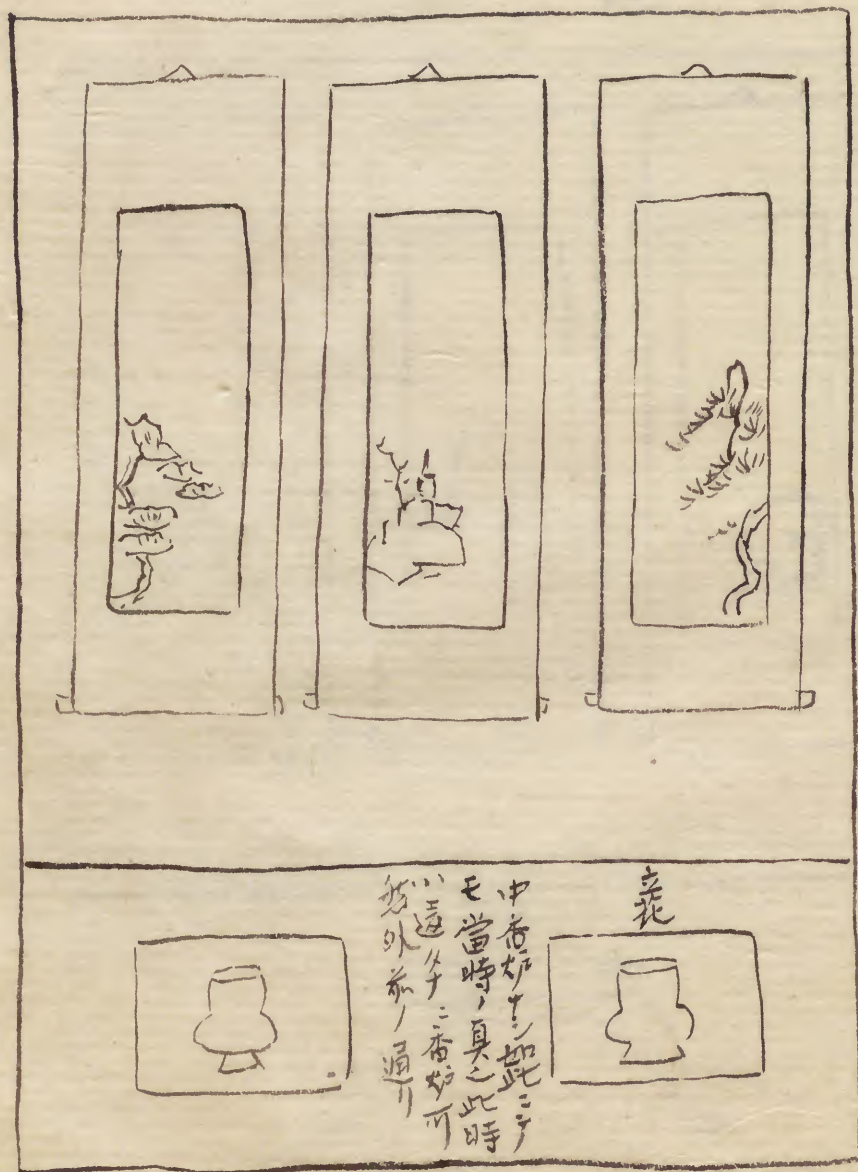 立花
中香炉ナシ如此ニテ
モ當時ノ真之此時
ハ違タナニ香炉可
餝外前ノ通リ